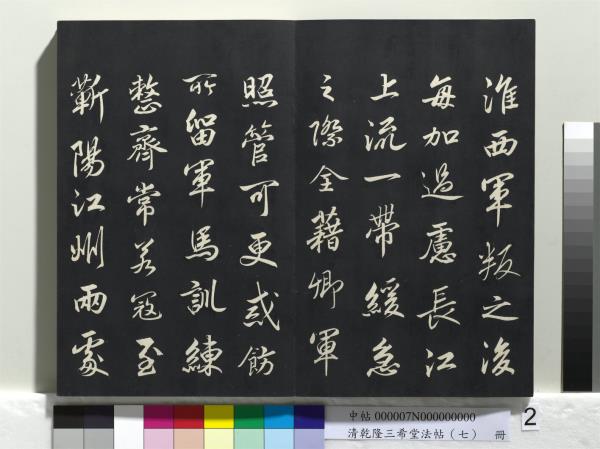 淮西軍叛之後
每加過慮長江
上流一帶緩急
之際全藉卿軍
照管可更戒飭
所留軍馬訓練
整齊常若寇至
蘄陽江州兩處
中帖 000007N000000000
清乾隆三希堂法帖（七） 冊
2